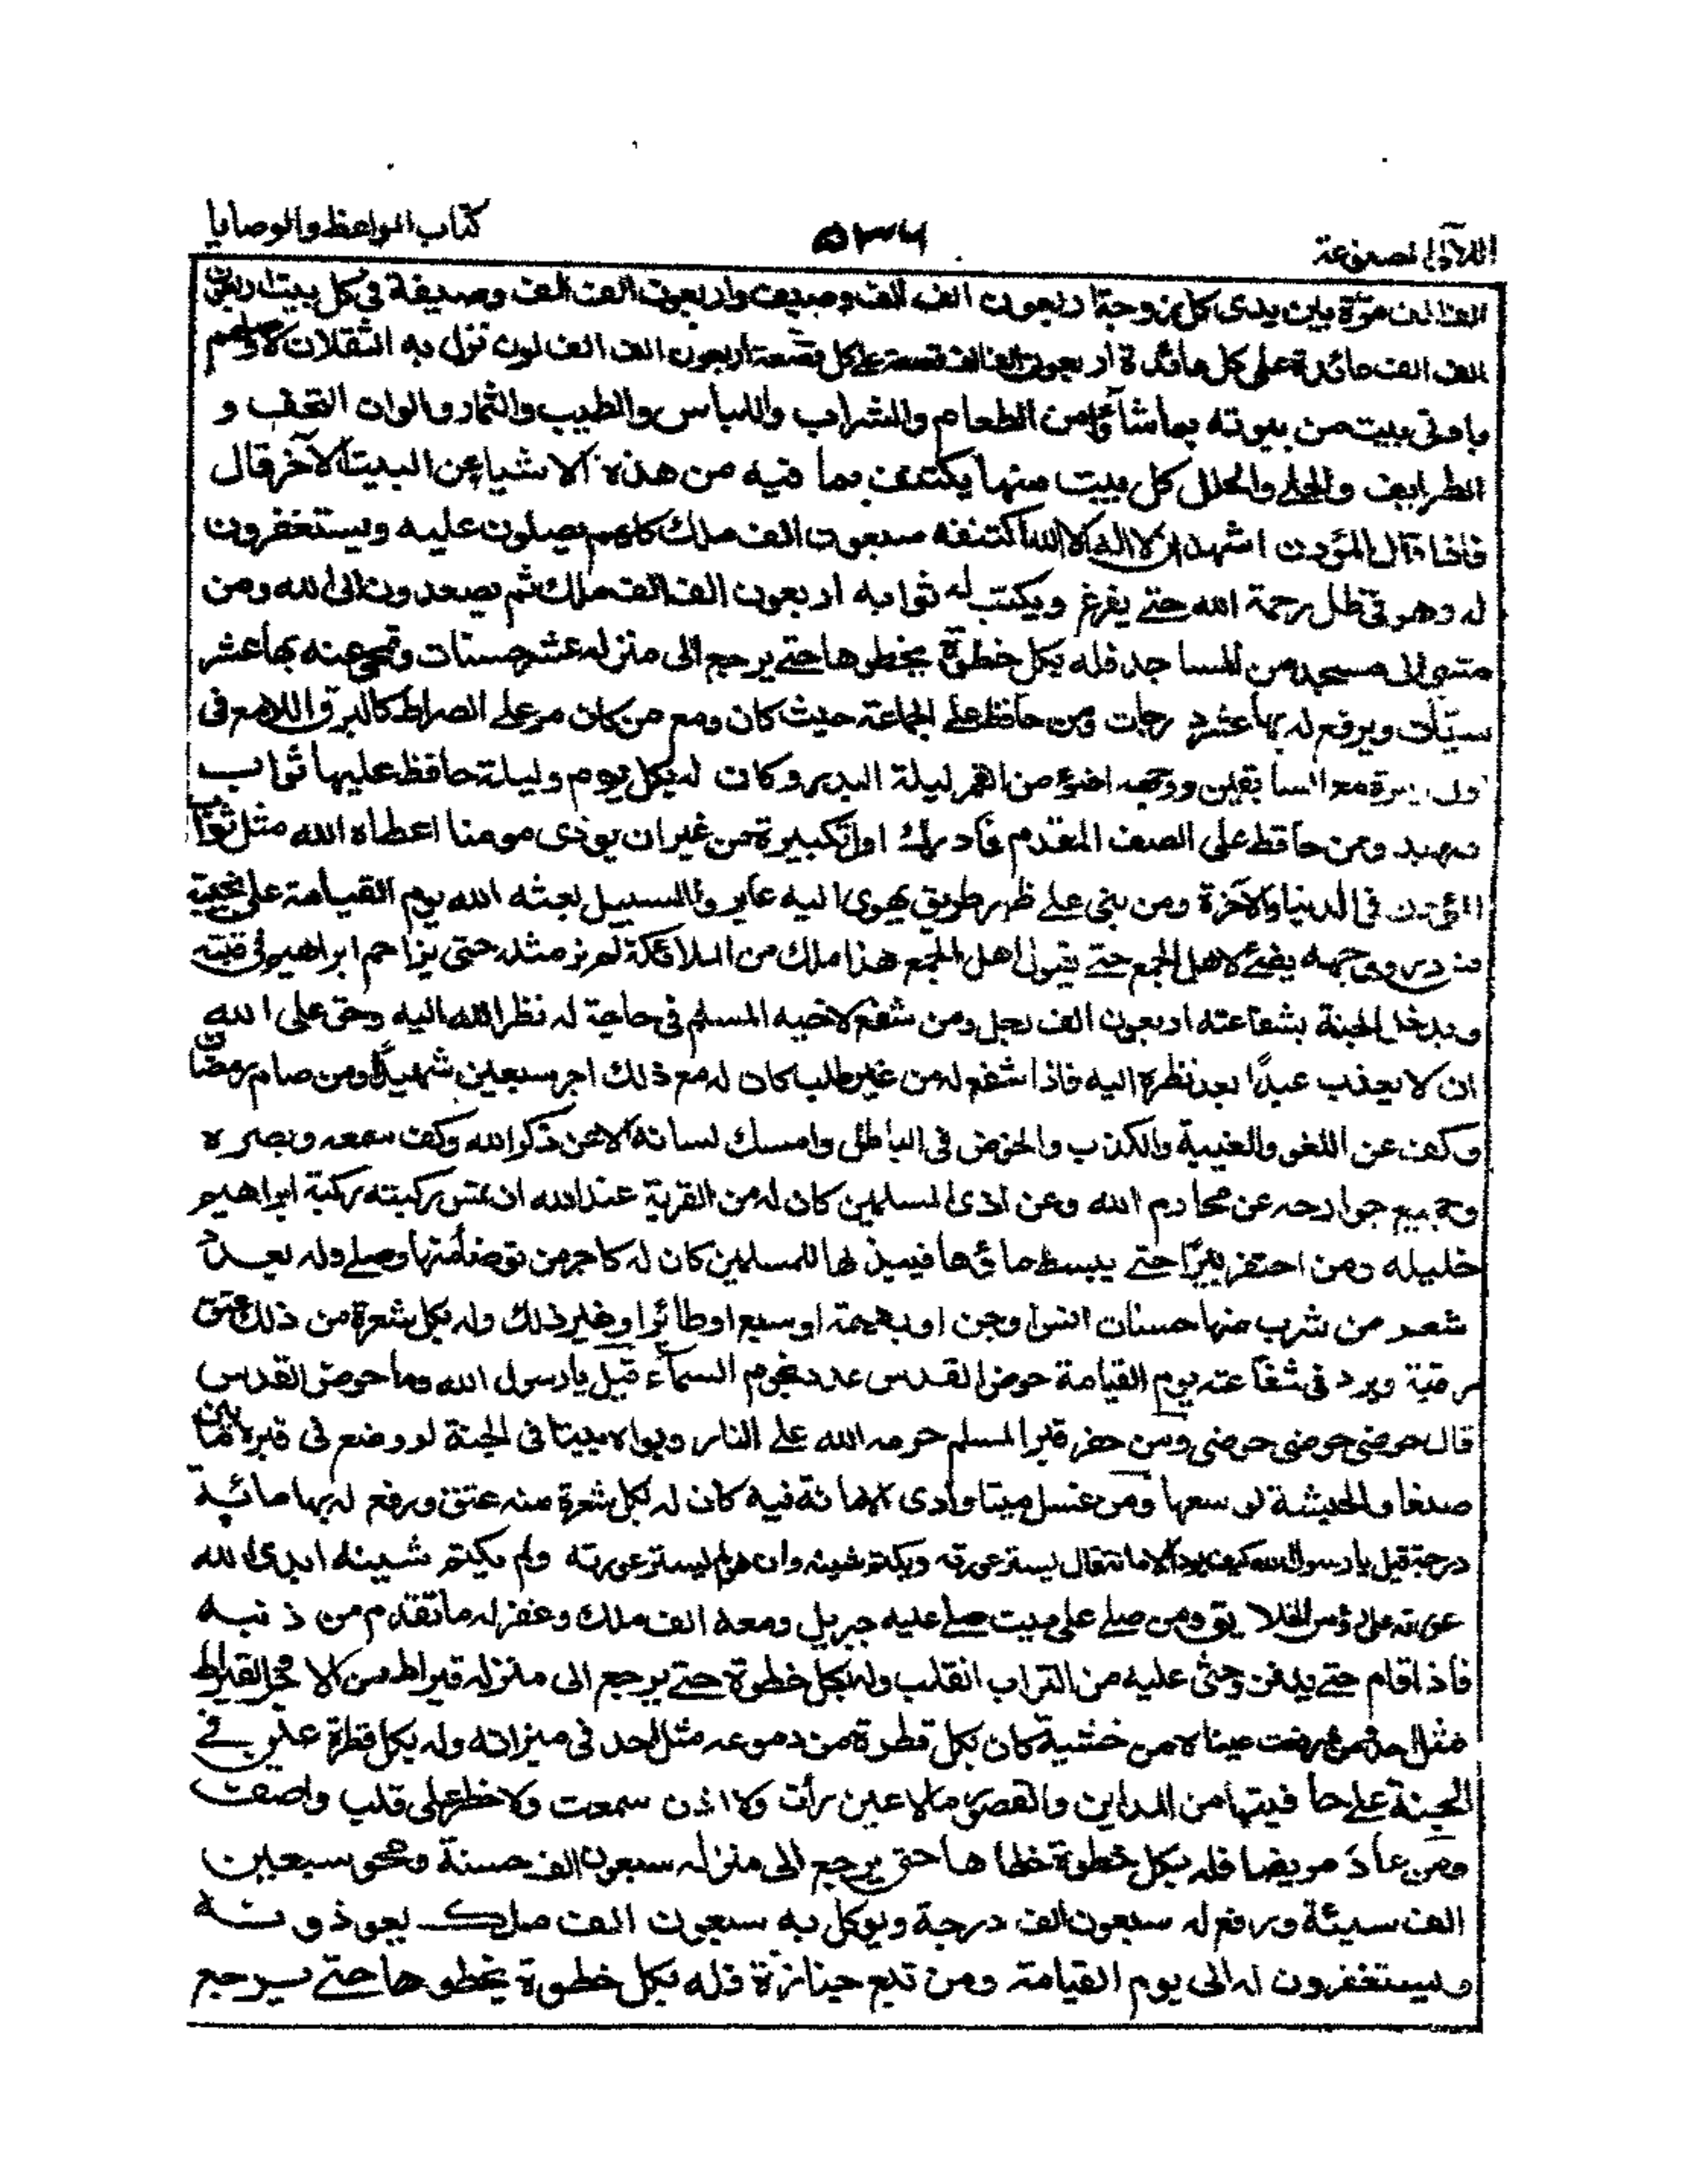 اللآلى المصنوعة
٥٣٧
كتاب المواعظ والوصايا
الف الف مرة بين يدى كل زوجة اربعون الف الف وصيف واربعون الف الف وصيفة فى كل بيت اربعون
الف الف مائدة على كل مائدة اربعون الف الف قصعة على كل قصعة اربعون الف الف لون لو نزل به الثقلان لاوسعهم
بادنى بيت من بيوته بما شاؤا من الطعام والشراب واللباس والطيب والثمار والوان التحف و
الطرايف والحلى والحلل كل بيت منها يكتفى بما فيه من هذه الاشياء عن البيت الآخر قال
فاذا قال المؤذن اشهد ان لا اله الا الله اكتنفه سبعون الف ملك كلهم يصلون عليه ويستغفرون
له وهو فى ظل رحمة الله حتى يفرغ ويكتب له ثوابه اربعون الف الف ملك ثم يصعدون الى الله ومن
مشى الى مسجد من المساجد فله بكل خطوة يخطوها حتى يرجع الى منزله عشر حسنات وتمحى عنه بها عشر
سيئات ويرفع له بها عشر درجات ومن حافظ على الجماعة حيث كان ومع من كان مر على الصراط كالبرق اللامع فى
اول زمرة مع السابقين ووجهه اضوء من القمر ليلة البدر وكان له بكل يوم وليلة حافظ عليها ثواب
شهيد ومن حافظ على الصف المقدم فادرك اول تكبيرة من غير ان يوذى مومنا اعطاه الله مثل ثواب
المؤذن فى الدنيا والآخرة ومن بنى على ظهر طريق يهوى اليه عابروا السبيل بعثه الله يوم القيامة على نجيبة
من در ووجهه يضئ لاهل الجمع حتى يقول اهل الجمع هذا ملك من الملائكة لم نر مثله حتى يزاحم ابراهيم فى قبته
ويدخل الجنة بشفاعته اربعون الف رجل ومن شفع لاخيه المسلم فى حاجة له نظر الله اليه وحق على الله
ان لا يعذب عبدًا بعد نظره اليه فاذا شفع له من غير طلب كان له مع ذلك اجر سبعين شهيدًا ومن صام رمضان
وكف عن اللغو والغيبة والكذب والخوض فى الباطل وامسك لسانه الا عن ذكر الله وكف سمعه وبصره
وجميع جوارحه عن محارم الله وعن اذى المسلمين كان له من القربة عند الله ان تمس ركبته ركبة ابراهيم
خليله ومن احتفر بئرًا حتى يبسط ماؤها فيبذلها للمسلمين كان له كاجر من توضأ منها وصلى وله بعدد
شعر من شرب منها حسنات انس او جن او بهيمة او سبع او طائر او غير ذلك وله بكل شعرة من ذلك عتق
رقبة ويرد فى شفاعته يوم القيامة حوض القدس عدد نجوم السماء قيل يا رسول الله وما حوض القدس
قال حوضى حوضى حوضى ومن حفر قبرا لمسلم حرمه الله على النار وبواه بيتا فى الجنة لو وضع فى قبره ما بين
صنعا والحبشة لوسعها ومن غسل ميتا وادى الامانة فيه كان له بكل شعرة منه عتق ورفع له بها مائة
درجة قيل يا رسول الله كيف يودى الامانة قال يستر عورته ويكتم شينه وان هو لم يستر عورته ولم يكتم شينه ابدى الله
عورته على رؤس الخلايق ومن صلى على ميت صلى عليه جبريل ومعه الف ملك وغفر له ما تقدم من ذنبه
فاذا اقام حتى يدفن وحثى عليه من التراب انقلب وله بكل خطوة حتى يرجع الى منزله قيراط من الاجر القيراط
مثل احد ومن ذرفت عيناه من خشية كان بكل قطرة من دموعه مثل احد فى ميزانه وله بكل قطرة عين فى
الجنة على حافيتها من المداين والقصور مالا عين رأت ولا اذن سمعت ولا خطر على قلب واصف
ومن عاد مريضا فله بكل خطوة خطاها حتى يرجع الى منزله سبعون الف حسنة ومحو سبعين
الف سيئة ورفع له سبعون الف درجة ويوكل به سبعون الف ملك يعوذونه
ويستغفرون له الى يوم القيامة ومن تبع جنازة فله بكل خطوة يخطوها حتى يرجع